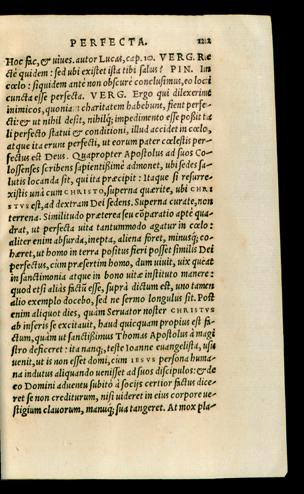 PERFECTA. 122
Hoc fac, & uiues. autor Lucas, cap. 10. VERG. Re-
cte quidem: sed ubi existet ista tibi salus? PIN. In
cœlo: siquidem ante non obscure conclusimus, eo loci
cuncta esse perfecta. VERG. Ergo qui dilexerint
inimicos, quoniam charitatem habebunt, fient perfe-
cti: & ut nihil desit, nihilq; impedimento esse possit ta
li perfecto statui & conditioni, illud accidet in cœlo,
atque ita erunt perfecti, ut eorum pater cœlestis per-
fectus est Deus. Quapropter Apostolus ad suos Co-
lossenses scribens sapientissime admonet, ubi sedes sa-
lutis locanda sit, qui ita præcipit: Itaque si resurre-
xistis unà cum CHRISTO, superna quærite, ubi CHRI
STVS est, ad dextram Dei sedens. Superna curate, non
terrena. Similitudo præterea seu cōparatio aptè qua-
drat, ut perfecta uita tantummodo agatur in cœlo:
aliter enim absurda, inepta, aliena foret, minusq; co-
hæret, ut homo in terra positus fieri posset similis Dei
perfectus, cùm præsertim homo, dum uiuit, uix queat
in sanctimonia atque in bono uitæ instituto manere:
quod etsi aliàs factū esse, suprà dictum est, uno tamen
alio exemplo docebo, sed ne sermo longulus sit. Post
enim aliquot dies, quàm Seruator noster CHRISTVS
ab inferis se excitauit, haud quicquam propius est fa-
ctum, quàm ut sanctissimus Thomas Apostolus à magi
stro deficeret: ita nanq;, teste Ioanne euangelista, usu
uenit, ut is non esset domi, cum IESVS persona huma-
na indutus aliquando uenisset ad suos discipulos: & de
eo Domini aduentu subitò à socijs certior factus dice-
ret se non crediturum, nisi uideret in eius corpore ue-
stigium clauorum, manuq; sua tangeret. At mox pla-